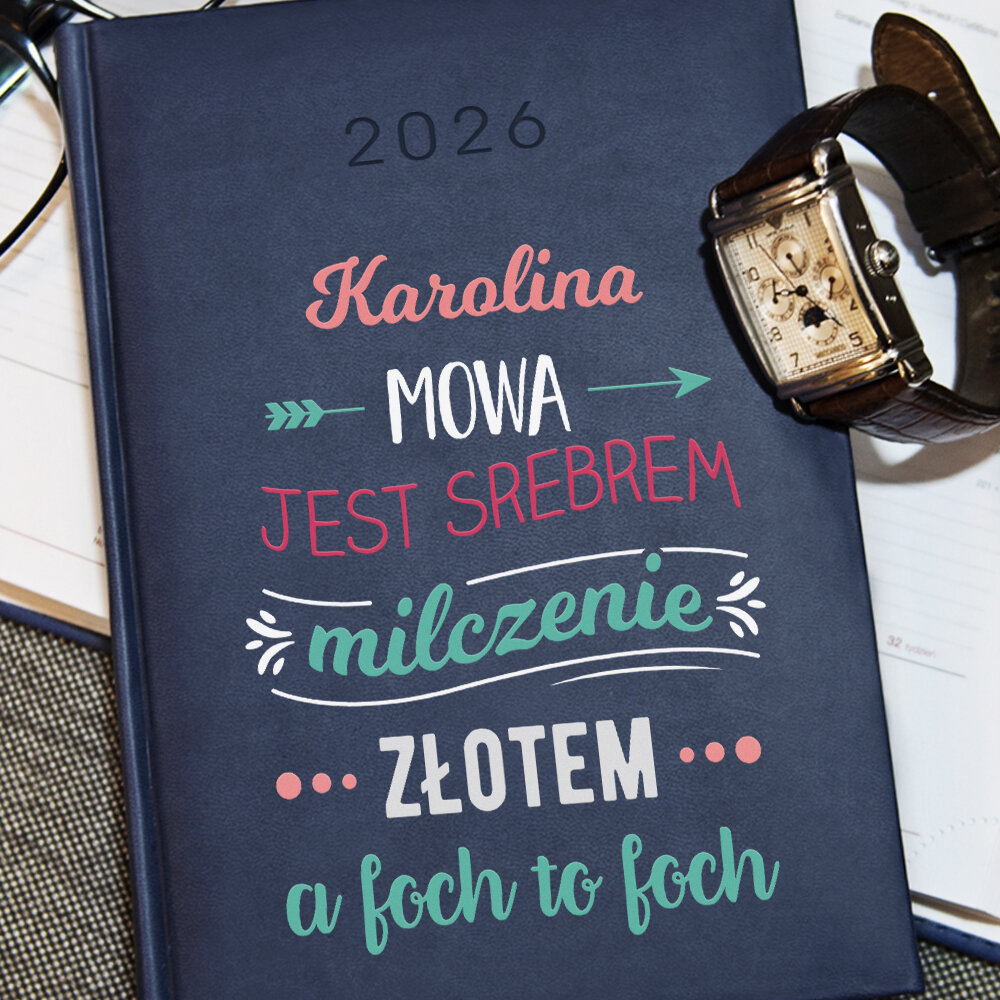 2026
Karolina
MOWA
JEST SREBREM
milczenie
ZŁOTEM
a foch to foch
32 tydzień